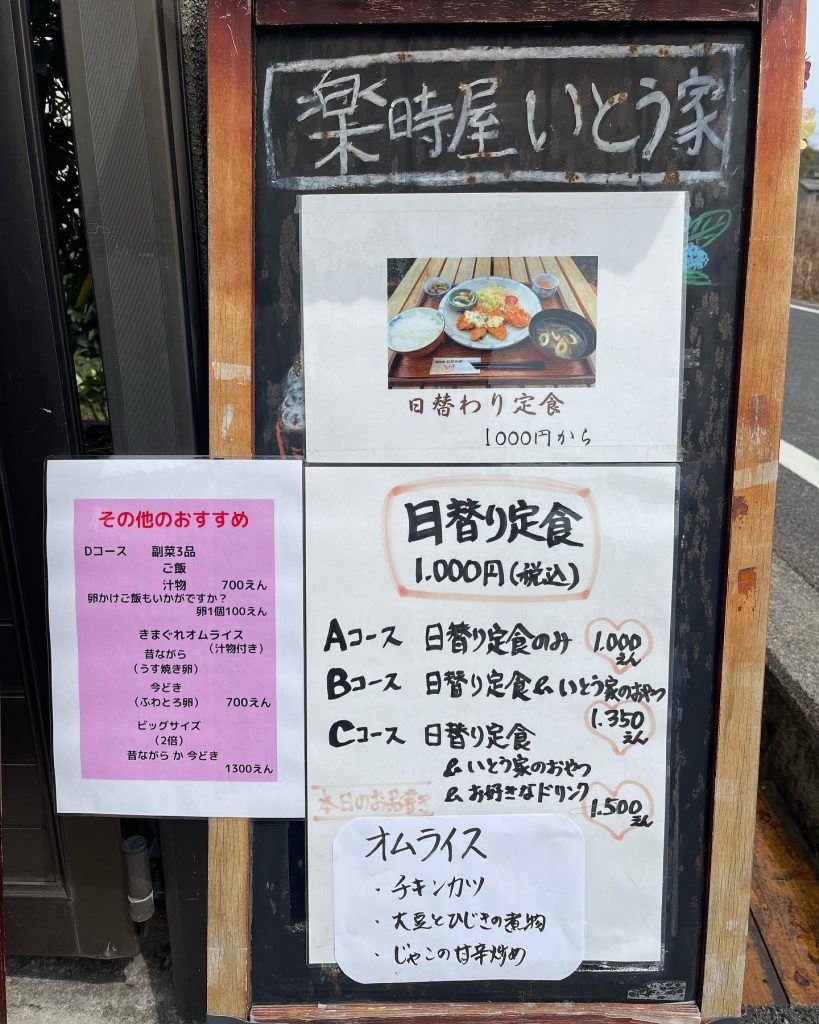 楽時屋 いとう家
日替わり定食
1000円から
その他のおすすめ
Dコース 副菜3品
ご飯
汁物 700えん
卵かけご飯もいかがですか？
卵1個100えん
きまぐれオムライス
(汁物付き)
昔ながら
(うす焼き卵)
今どき
(ふわとろ卵) 700えん
ビッグサイズ
(2倍)
昔ながら か 今どき
1300えん
日替り定食
1.000円(税込)
Aコース 日替り定食のみ 1.000えん
Bコース 日替り定食&いとう家のおやつ
1.350えん
Cコース 日替り定食
&いとう家のおやつ
&お好きなドリンク
1.500えん
本日のお品書き
オムライス
・チキンカツ
・大豆とひじきの煮物
・じゃこの甘辛炒め